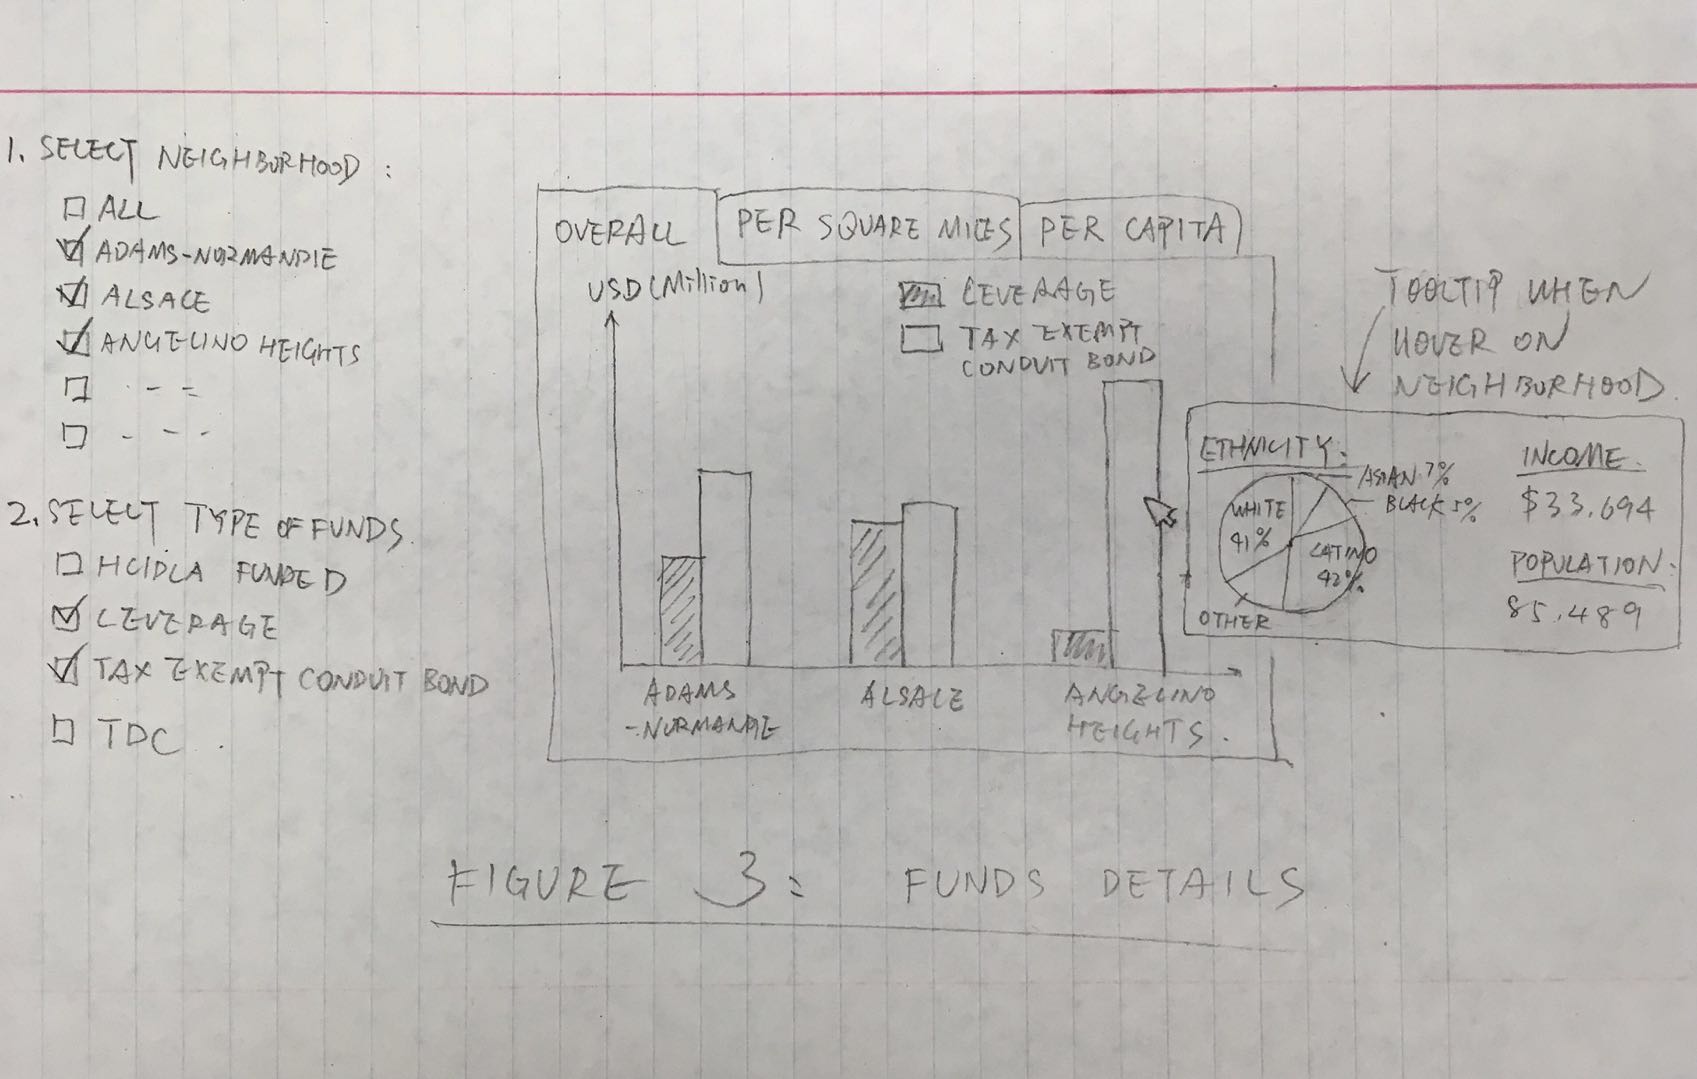 1. SELECT NEIGHBORHOOD :
ALL
ADAMS-NORMANDIE
ALSACE
ANGELINO HEIGHTS
2. SELECT TYPE OF FUNDS.
HCIDLA FUNDED
LEVERAGE
TAX EXEMPT CONDUIT BOND
TDC
OVERALL
PER SQUARE MILES
PER CAPITA
USD (Million)
LEVERAGE
TAX EXEMPT
CONDUIT BOND
ADAMS
-NORMANDIE
ALSACE
ANGELINO
HEIGHTS.
TOOLTIP WHEN
HOVER ON
NEIGHBORHOOD.
ETHNICITY:
ASIAN 7%
BLACK 5%
WHITE
41%
LATINO
42%
OTHER
INCOME:
$33,694
POPULATION:
85,489
FIGURE 3: FUNDS DETAILS